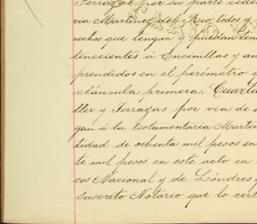 Terrazas por su parte ceden
cia Martinez del Rio, todos y
echos que tengan y puedan ten
tenecientes á Encinillas y an
prendidos en el perímetro y
cláusula primera. Cuarta
ller y Terrazas por via de
gan á la testamentaria Martin
tidad de ochenta mil pesos en
te mil pesos en este acto en
cos Nacional y de Lóndres y
suscrito Notario que lo cert